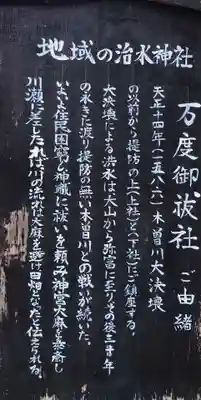 地域の治水神社
万度御祓社 ご由緒
天正十四年(一五八六)木曽川大決壊
の以前から堤防の上(上社)と(下社)にご鎮座する。
大決壊による洪水は大山から弥富に至りその後三十年
の永きに渡り堤防の無い木曽川との戦いが続いた。
いよいよ住民困窮の神職に祓いを頼み神宮大麻を奉斎し
川瀬に差したれば川の流水は大麻を避け田畑へなだれと伝えられる。